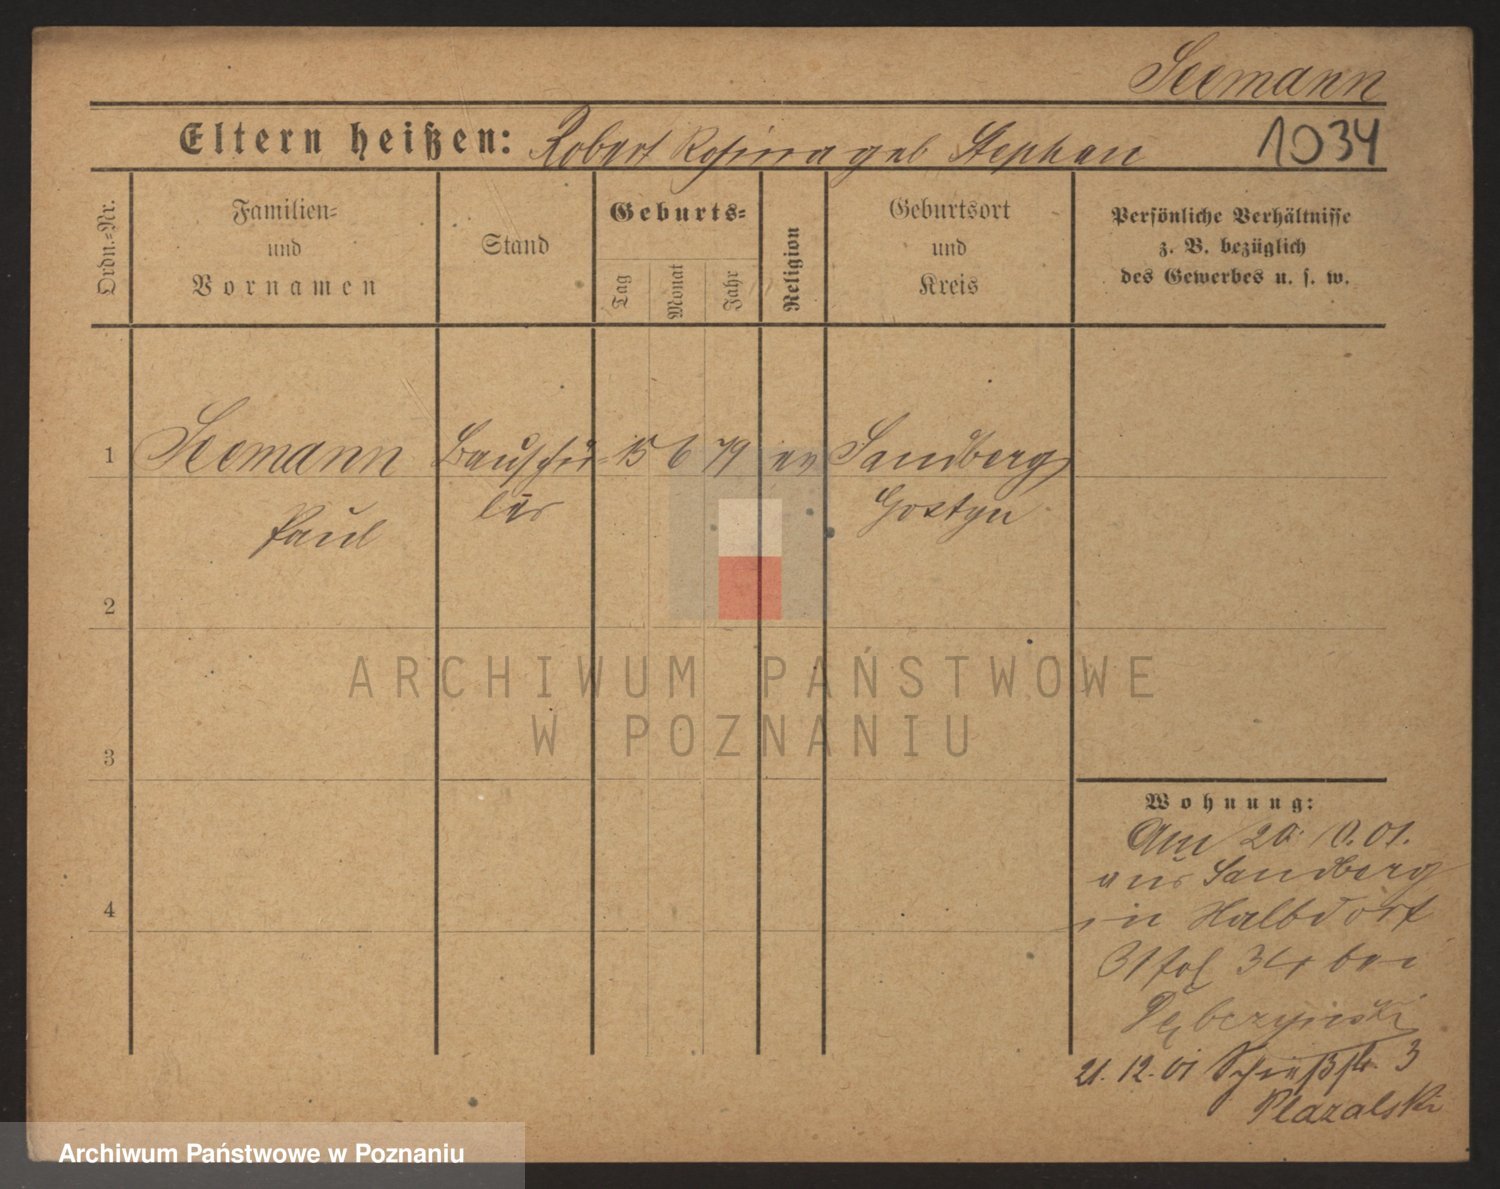 Seemann
Eltern heißen: Robert Rosina geb Stephan 1034
Ordn.=Nr.
Familien=
und
Vornamen
Stand
Geburts=
Tag
Monat
Jahr
Religion
Geburtsort
und
Kreis
Persönliche Verhältnisse
z. B. bezüglich
des Gewerbes u. s. w.
1 Seemann Bauschü- 15 6 79 ev Sandberg
Paul ler Gostyn
2
3
4
ARCHIWUM PAŃSTWOWE
W POZNANIU
Wohnung:
Am 20. 10. 01.
aus Sandberg
in Halbdorf
31 34 bei
21. 12. 01 Schießstr. 3
Plazalski
Archiwum Państwowe w Poznaniu